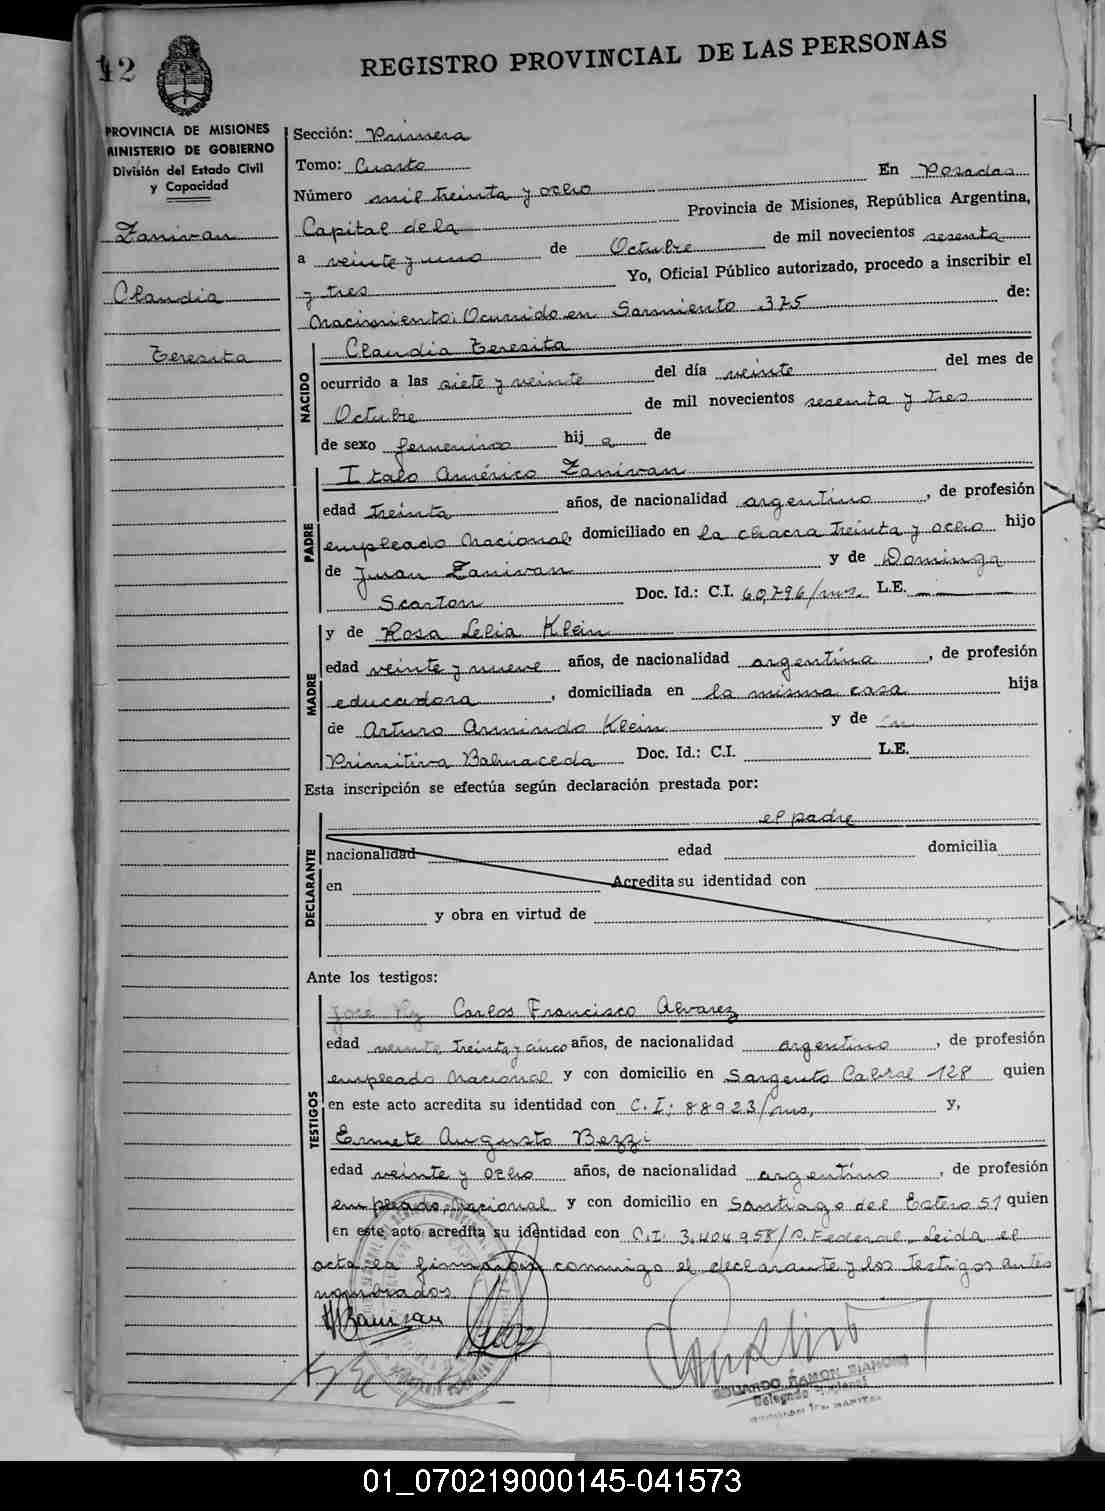 12
REGISTRO PROVINCIAL DE LAS PERSONAS
PROVINCIA DE MISIONES
MINISTERIO DE GOBIERNO
División del Estado Civil
y Capacidad
Zanivan
Claudia
Teresita
Sección: Primera
Tomo: Cuarto
Número mil treinta y ocho En Posadas
Capital de la Provincia de Misiones, República Argentina,
a veinte y uno de Octubre de mil novecientos sesenta
y tres Yo, Oficial Público autorizado, procedo a inscribir el
Nacimiento: Ocurrido en Sarmiento 375 de:
NACIDO
Claudia Teresita
ocurrido a las siete y veinte del día veinte del mes de
Octubre de mil novecientos sesenta y tres
de sexo femenino hij a de
PADRE
Italo Américo Zanivan
edad treinta años, de nacionalidad argentino, de profesión
empleado Nacional, domiciliado en la chacra treinta y ocho hijo
de Juan Zanivan y de Dominga
Scarton Doc. Id.: C.I. 60,796/mis. L.E.
MADRE
y de Rosa Lelia Klein
edad veinte y nueve años, de nacionalidad argentina, de profesión
educadora, domiciliada en la misma casa hija
de Arturo Armindo Klein y de
Primitiva Balmaceda Doc. Id.: C.I. L.E.
Esta inscripción se efectúa según declaración prestada por:
el padre
DECLARANTE
nacionalidad edad domicilia
en Acredita su identidad con
y obra en virtud de
Ante los testigos:
TESTIGOS
José Carlos Francisco Alvarez
edad veinte treinta y cinco años, de nacionalidad argentino, de profesión
empleado Nacional y con domicilio en Sargento Cabral 128 quien
en este acto acredita su identidad con C.I: 88923/mis, y,
Ermete Augusto Bezzi
edad veinte y ocho años, de nacionalidad argentino, de profesión
empleado Nacional y con domicilio en Santiago del Estero 51 quien
en este acto acredita su identidad con C.I: 3.404.958/P. Federal. Leida el
acta la firmaron conmigo el declarante y los testigos antes
nombrados
EDUARDO RAMON BIANCHI
Delegado Regional
01_070219000145-041573